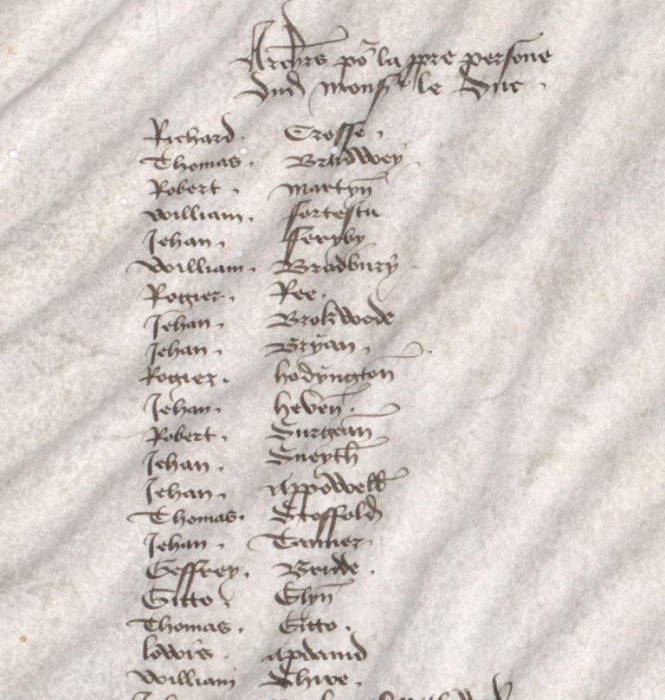 Archrs por la ppre persone
dud monsr le Duc
Richard Crosse
Thomas Bradwey
Robert Martyn
William fortescu
Jehan fferyby
William Bradbury
Rogier Ree
Jehan Brokwode
Jehan Bryan
Rogier hodyngton
Jehan heven
Robert Surgean
Jehan Sneyth
Jehan appowell
Thomas Stoffold
Jehan Tanner
Geffrey Bridde
Gitto Glyn
Thomas Gitto
lowis apdavid
William